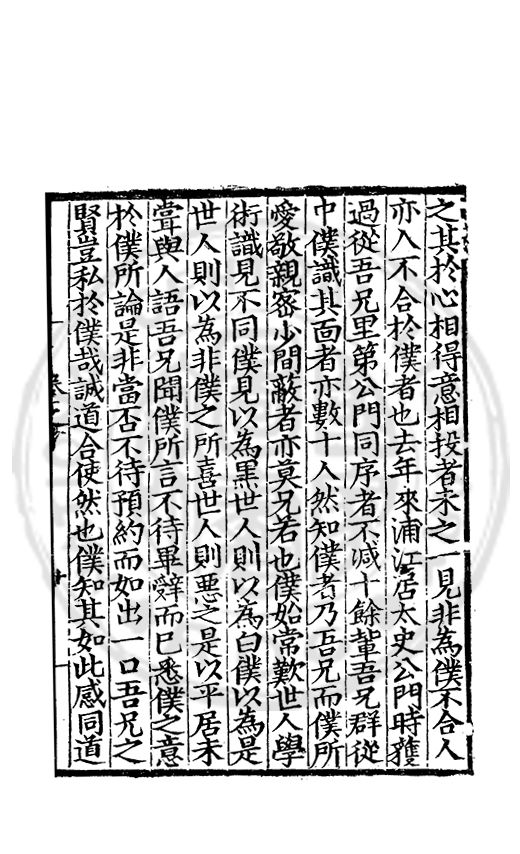 之其於心相得意相投者未之一見非為僕不合人
亦人不合於僕者也去年來浦江居太史公門時獲
過從吾兄里第公門同序者不减十餘輩吾兄群從
中僕識其面者亦數十人然知僕者乃吾兄而僕所
愛敬親密少間蔽者亦莫兄若也僕始常歎世人學
術識見不同僕見以為黑世人則以為白僕以為是
世人則以為非僕之所喜世人則惡之是以平居未
甞與人語吾兄聞僕所言不待畢辭而已悉僕之意
於僕所論是非當否不待預約而如出一口吾兄之
賢豈私於僕哉誠道合使然也僕知其如此感同道